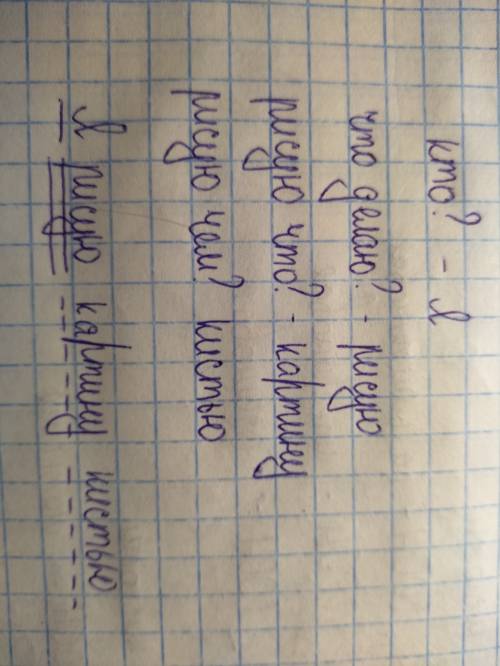 кто? - я
что делаю? - рисую
рисую что? - картину
рисую чем? кистью
Я рисую картину кистью